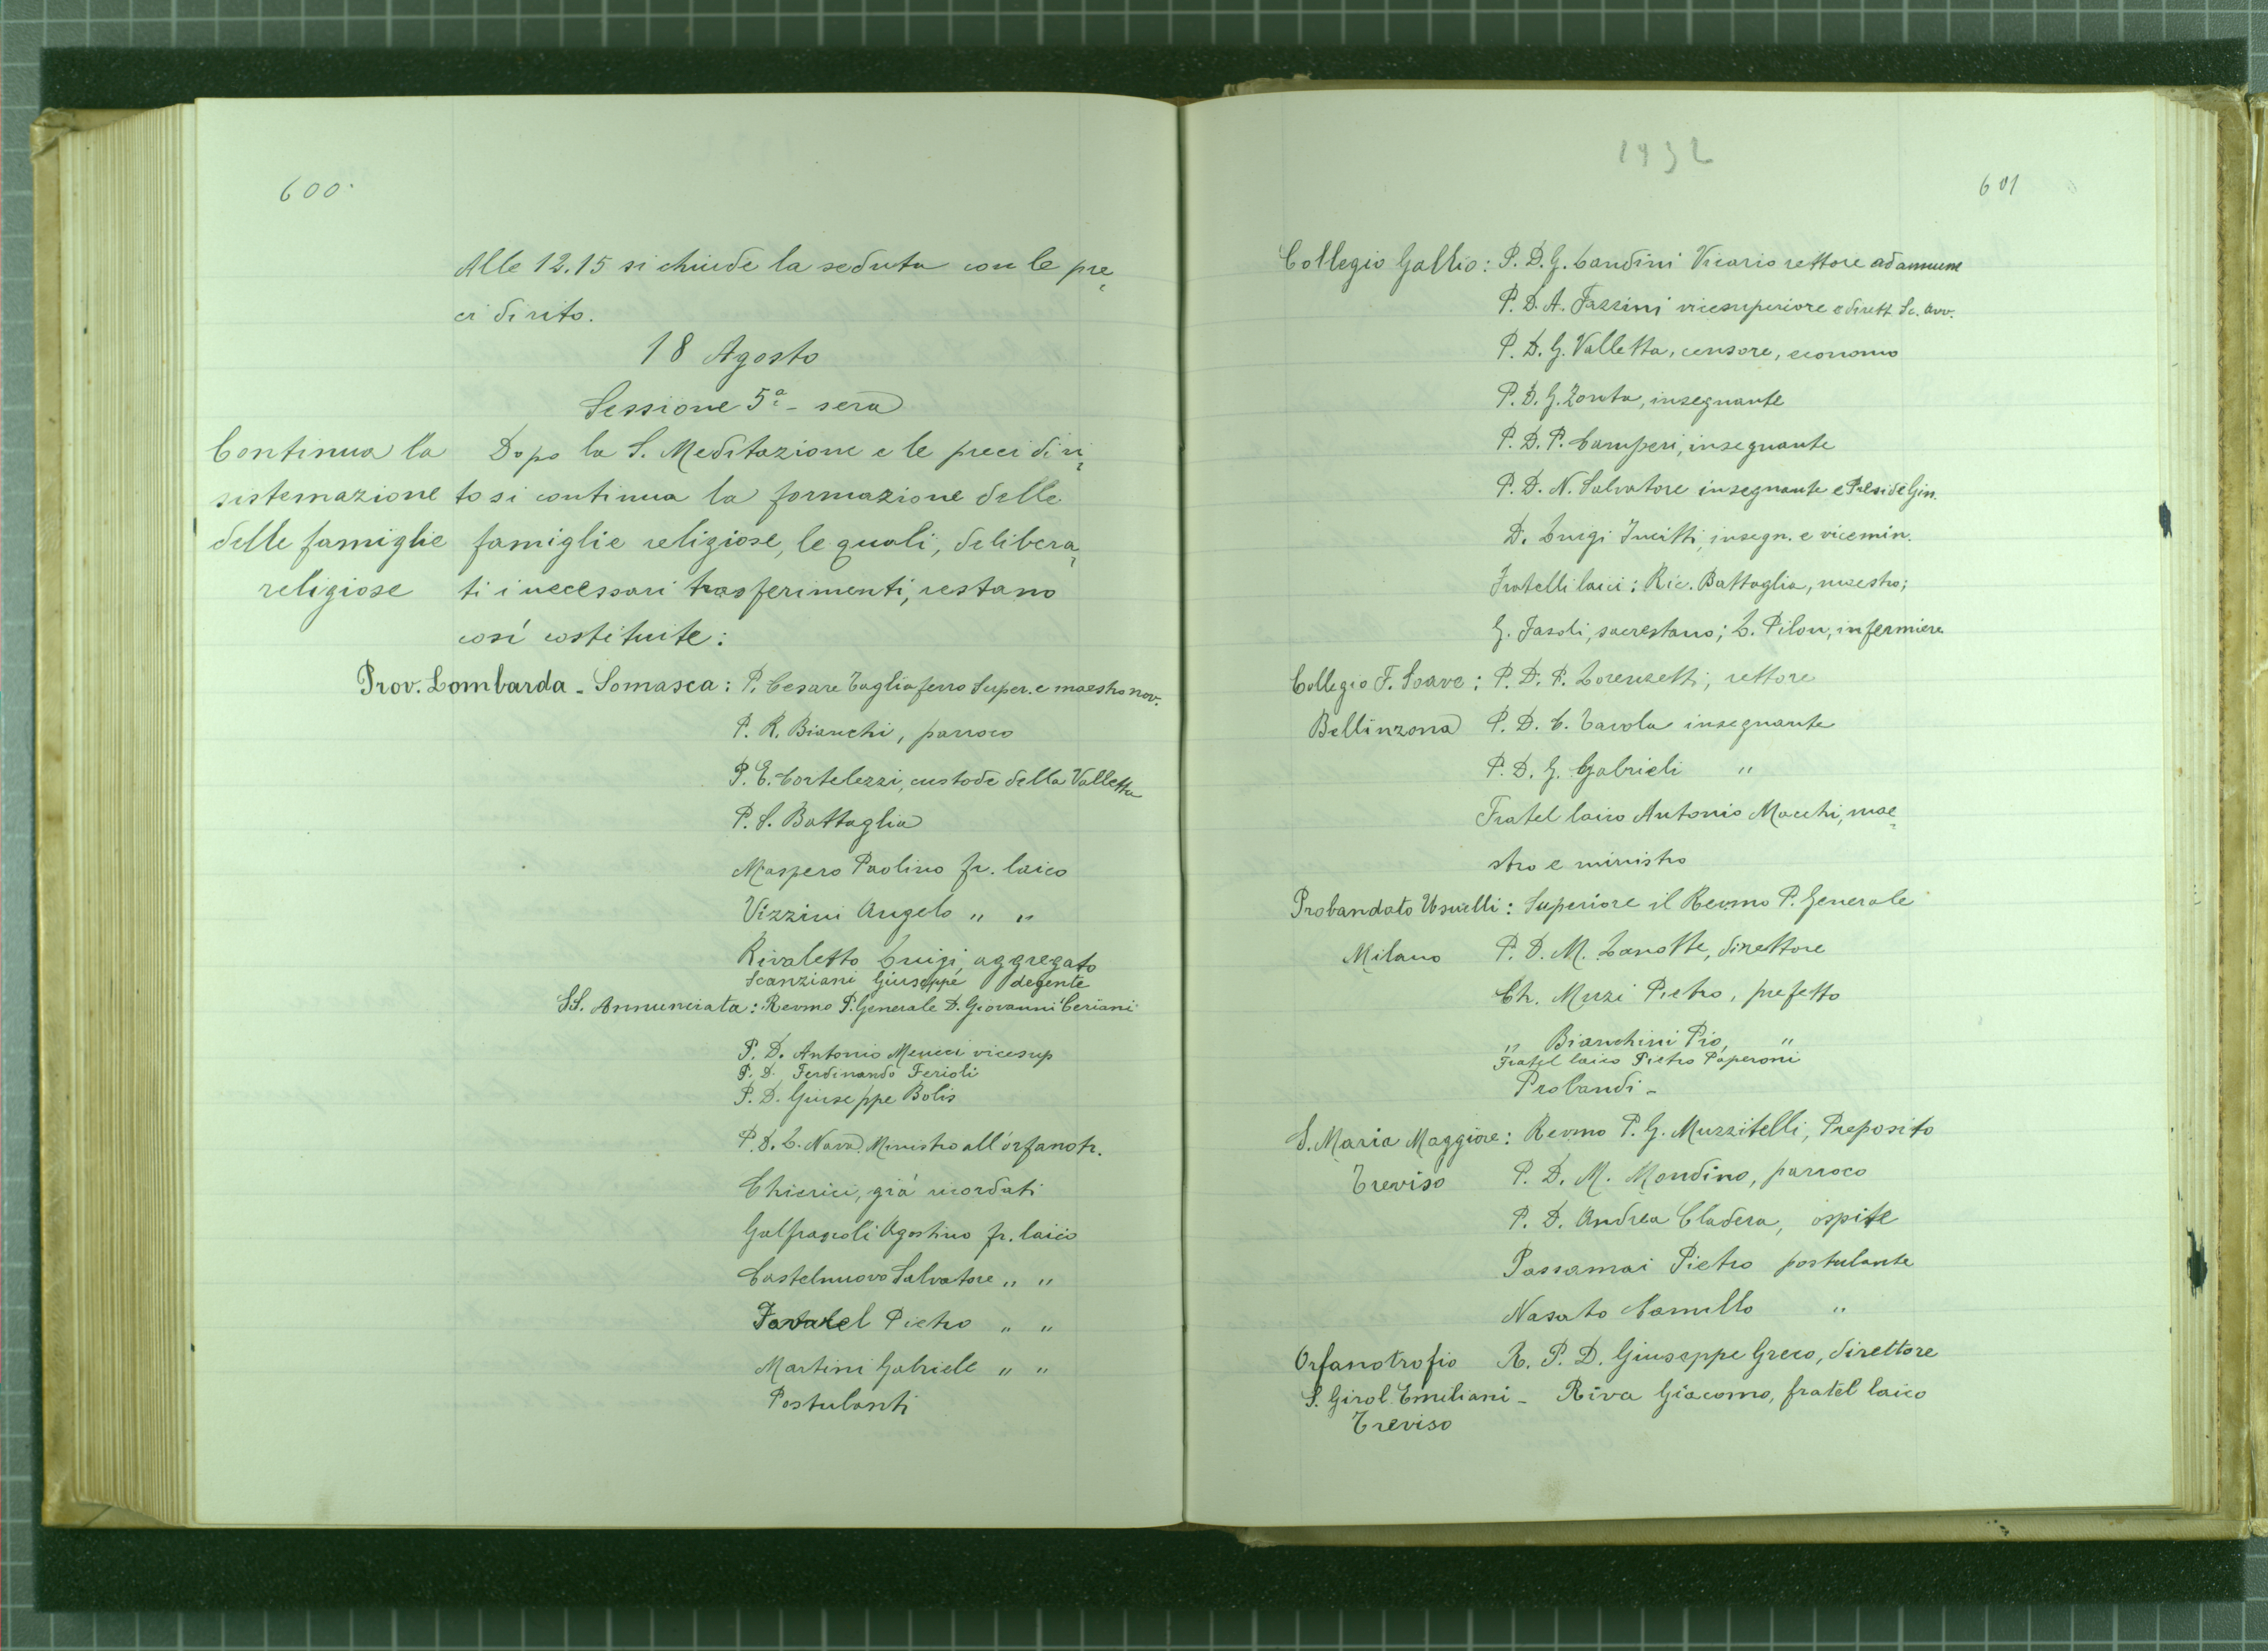 600.
Alle 12.15 si chiude la seduta con le pre
ci di rito.
18 Agosto
Sessione 5ª - sera
Continua la
sistemazione
delle famiglie
religiose
Dopo la S. Meditazione e le preci di ri
to si continua la formazione delle
famiglie religiose, le quali, delibera
ti i necessari trasferimenti, restano
così costituite:
Prov. Lombarda - Somasca: P. Cesare Tagliaferro Super. e maestro nov.
P. R. Bianchi, parroco
P. E. Cortelezzi, custode della Valletta
P. S. Battaglia
Maspero Paolino fr. laico
Vizzini Angelo " "
Rivaletto Luigi, aggregato
Scanziani Giuseppe degente
SS. Annunciata: Revmo P. Generale D. Giovanni Ceriani
P. D. Antonio Meucci vicesup
P. D. Ferdinando Ferioli
P. D. Giuseppe Bolis
P. D. L. Nava Ministro all'orfanotr.
Chierici, già ricordati
Galfrascoli Agostino fr. laico
Castelnuovo Salvatore " "
Pietro " "
Martini Gabriele " "
Postulanti
1932
601
Collegio Gallio: P. D. G. Landini Vicario rettore ad annum
P. D. A. Fazzini vicesuperiore e dirett. Sc. Avv.
P. D. G. Valletta, censore, economo
P. D. G. Zonta, insegnante
P. D. P. Camperi, insegnante
P. D. N. Salvatore insegnante e Preside Gin.
D. Luigi Incitti, insegn. e vicemin.
Fratelli laici: Ric. Battaglia, maestro;
G. Fasoli, sacrestano; L. Pilon, infermiere
Collegio F. Soave: P. D. F. Lorenzetti, rettore
Bellinzona P. D. C. Tavola insegnante
P. D. G. Gabrieli "
Fratel laico Antonio Macchi, mae
stro e ministro
Probandato Usuelli: Superiore il Revmo P. Generale
Milano P. D. M. Lanotte, direttore
Ch. Muzi Pietro, prefetto
" Bianchini Pio, "
Fratel laico Pietro Paperoni
Probandi -
S. Maria Maggiore: Revmo P. G. Muzzitelli, Preposito
Treviso P. D. M. Mondino, parroco
P. D. Andrea Cladera, ospite
Passamai Pietro postulante
Nasato Camillo "
Orfanotrofio R. P. D. Giuseppe Greco, direttore
S. Girol. Emiliani - Riva Giacomo, fratel laico
Treviso